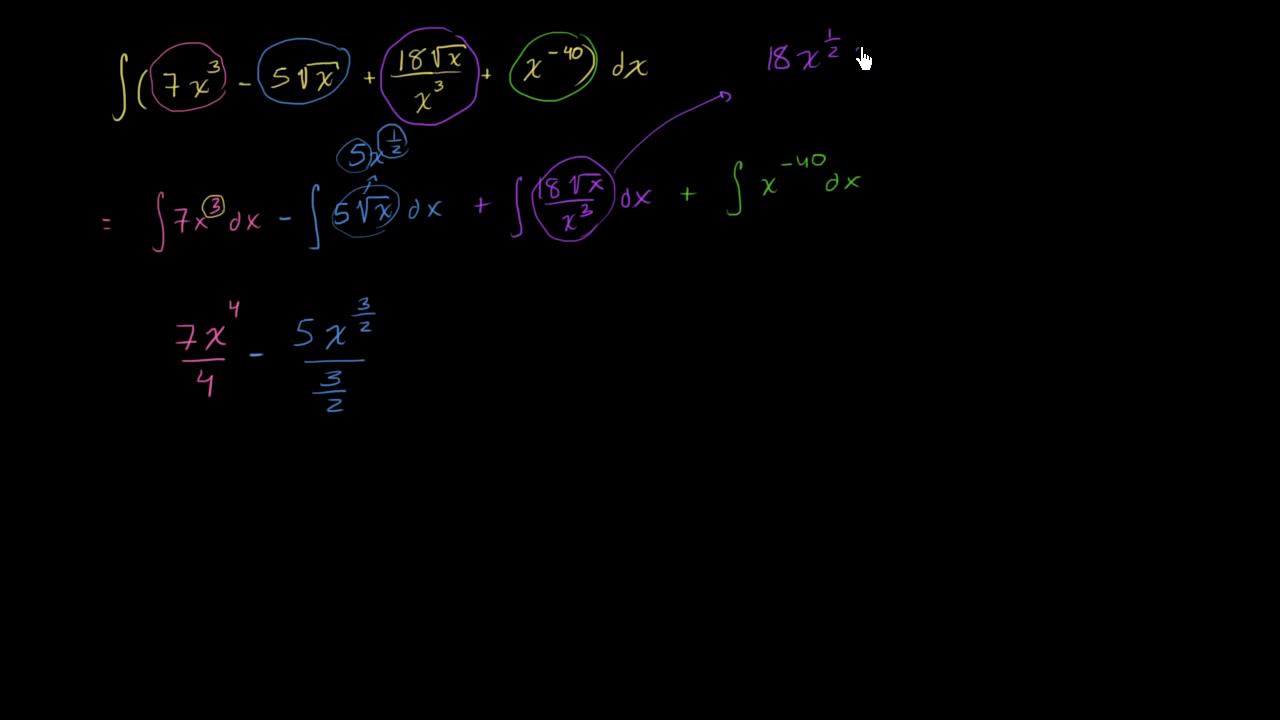 ∫(7x³ - 5√x + 18√x/x³ + x⁻⁴⁰) dx
18x^(1/2)
5x^(1/2)
= ∫7x³ dx - ∫5√x dx + ∫18√x/x³ dx + ∫x⁻⁴⁰ dx
7x⁴/4 - 5x^(3/2)/(3/2)